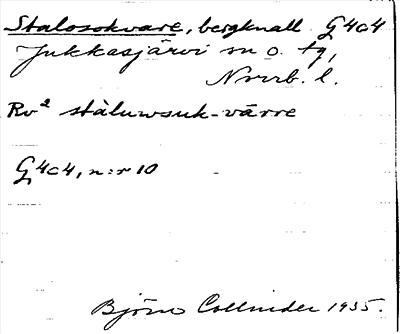 Stalosokvare, bergknall. G 4c4
Jukkasjärvi sn o. tg,
Norrb. l.
Rv² stàluwsuk-vārre
G 4c4, n:r 10
Björn Collinder 1935.